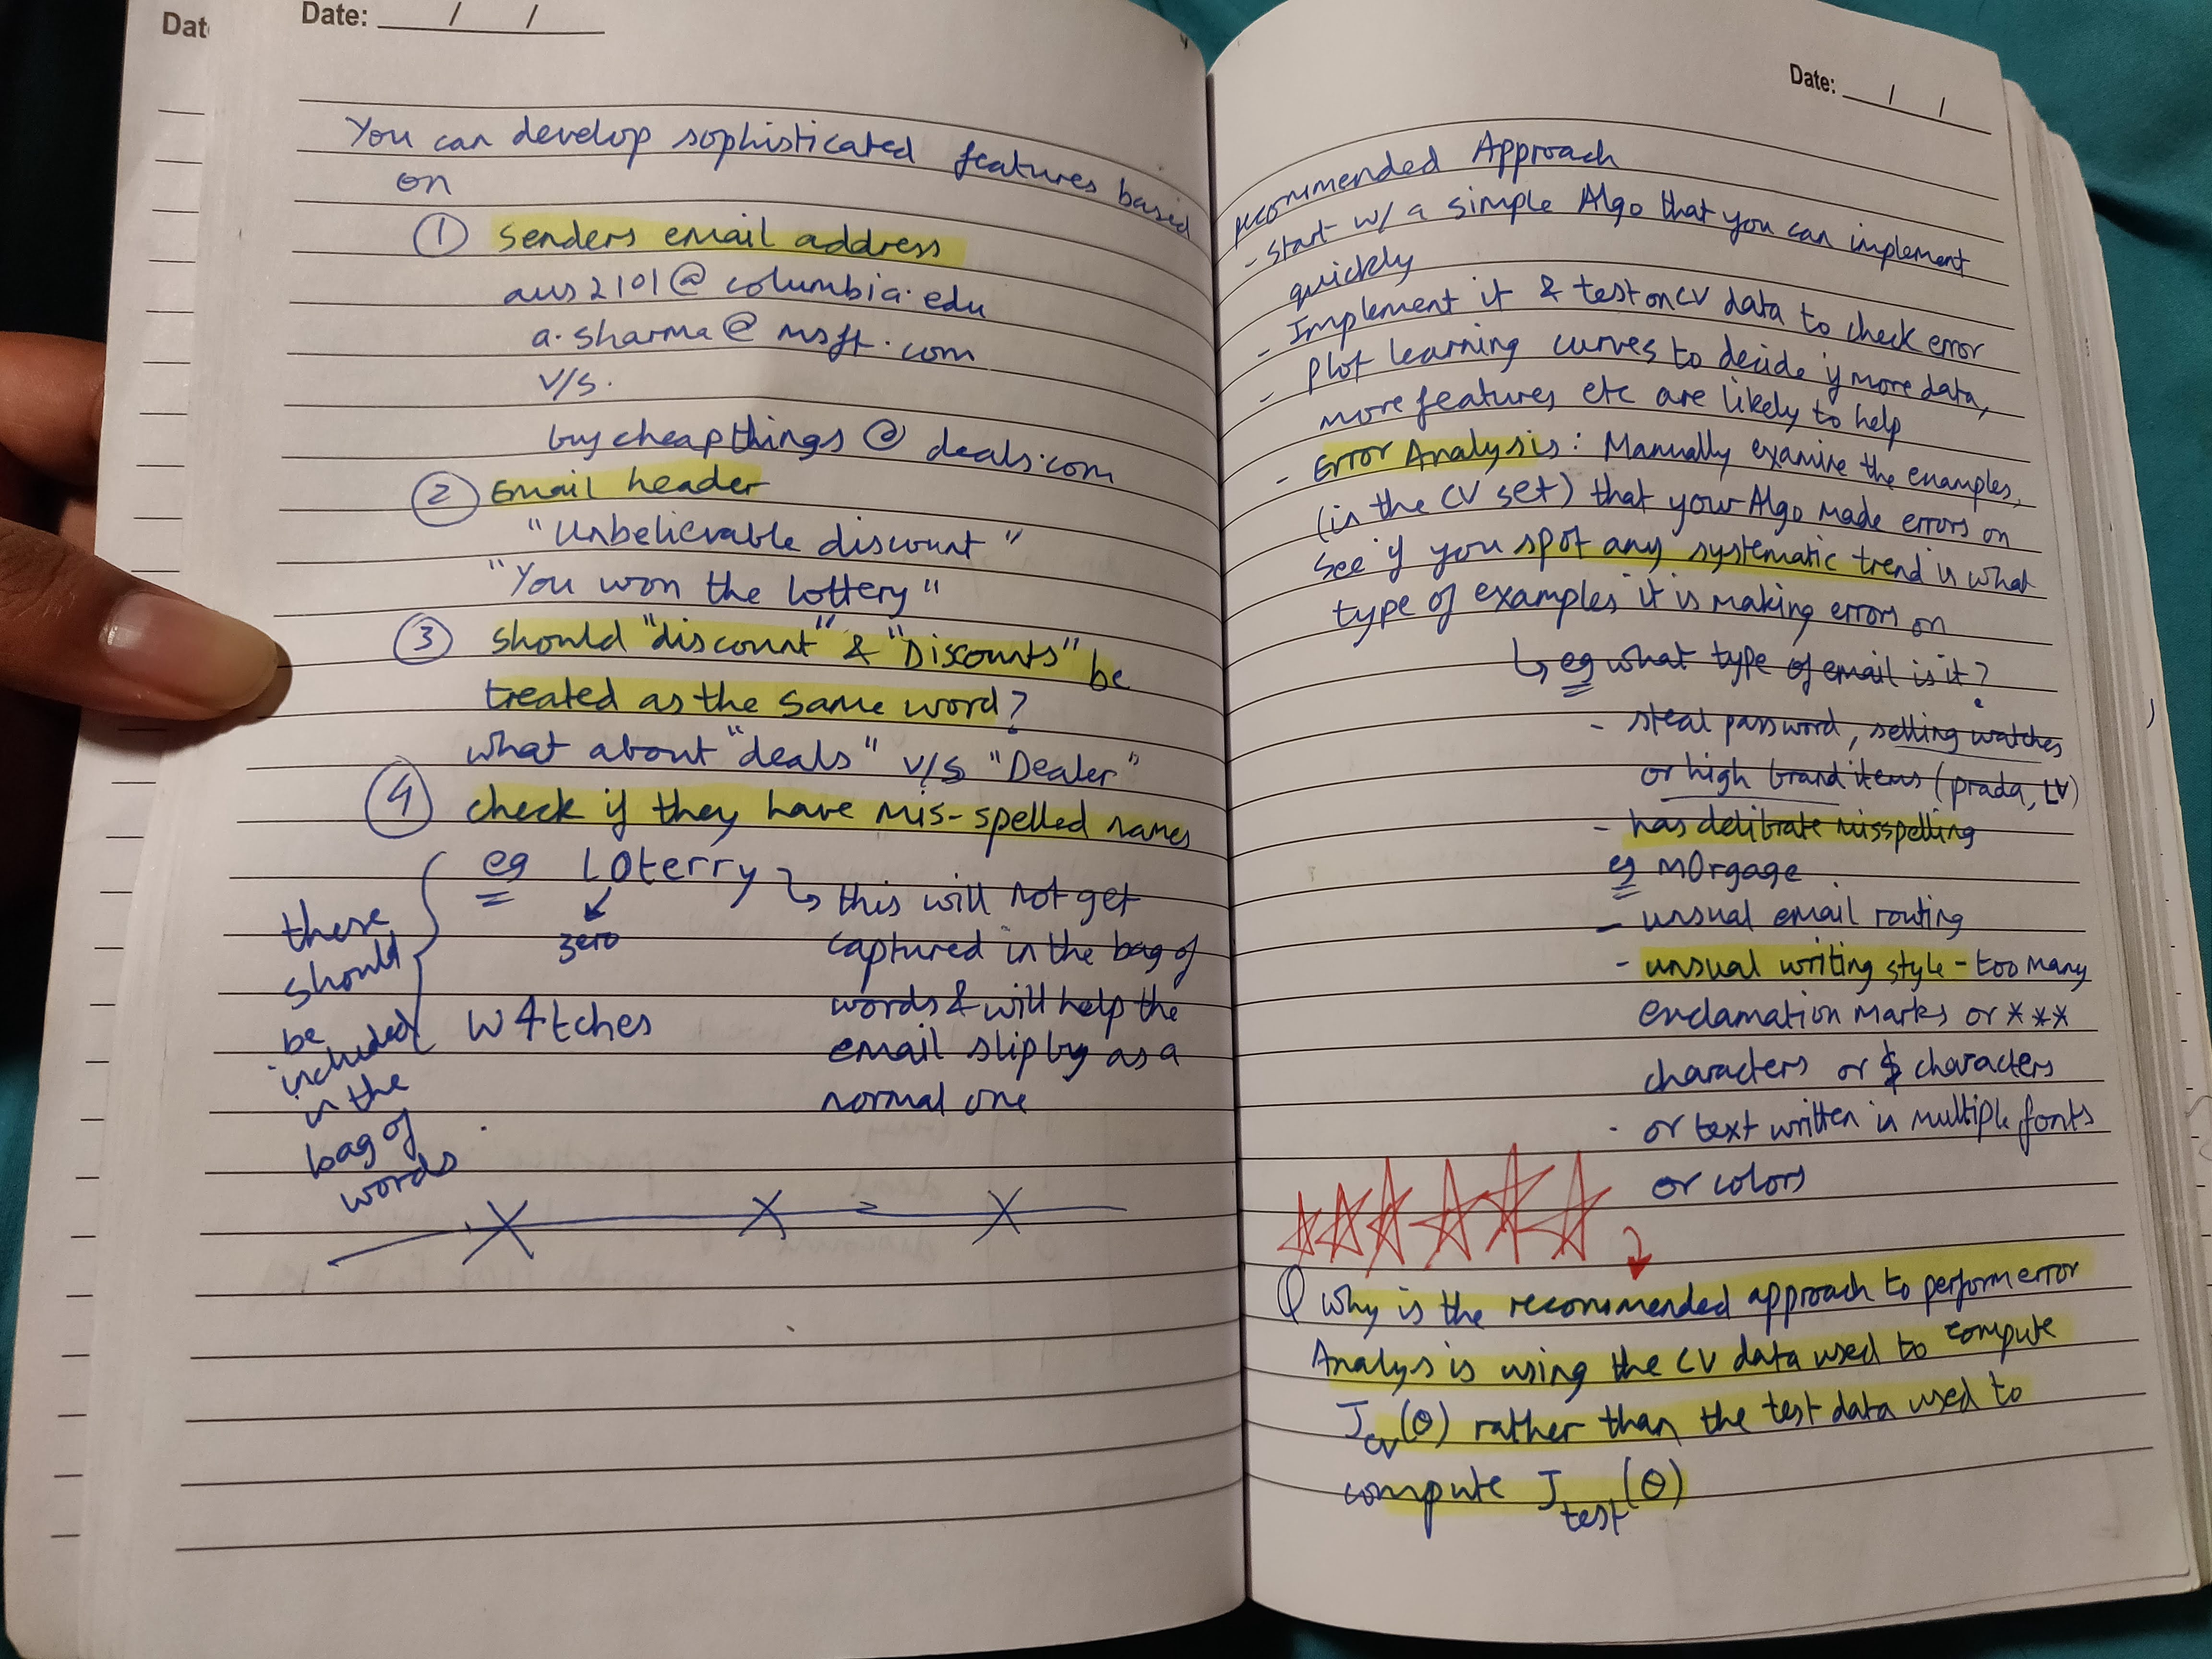 Dat
Date: ___/___/___
You can develop sophisticated features based
on
① Senders email address
aus2101@columbia.edu
a.sharma@msft.com
v/s.
buycheapthings@deals.com
② Email header
"Unbelievable discount"
"You won the lottery"
③ should "discount" & "Discounts" be
treated as the same word?
what about "deals" v/s "Dealer"
④ check if they have mis-spelled names
eg L0terry
zero
W4tches
this will not get
captured in the bag of
words & will help the
email slip by as a
normal one
these
should
be
included
in the
bag of
words.
Date: ___/___/___
recommended Approach
- start w/ a simple Algo that you can implement
quickly
- Implement it & test on CV data to check error
- Plot learning curves to decide if more data,
more features etc are likely to help
- Error Analysis: Manually examine the examples,
(in the CV set) that your Algo made errors on
See if you spot any systematic trend is what
type of examples it is making errors on
↳ eg what type of email is it?
- steal password, selling watches
or high brand items (prada, LV)
- has delibrate misspelling
eg m0rgage
- unsual email routing
- unsual writing style - too many
exclamation marks or ***
characters or $ characters
- or text written in multiple fonts
or colors
Q Why is the recommended approach to perform error
Analysis using the CV data used to compute
Jcv(θ) rather than the test data used to
compute Jtest(θ)